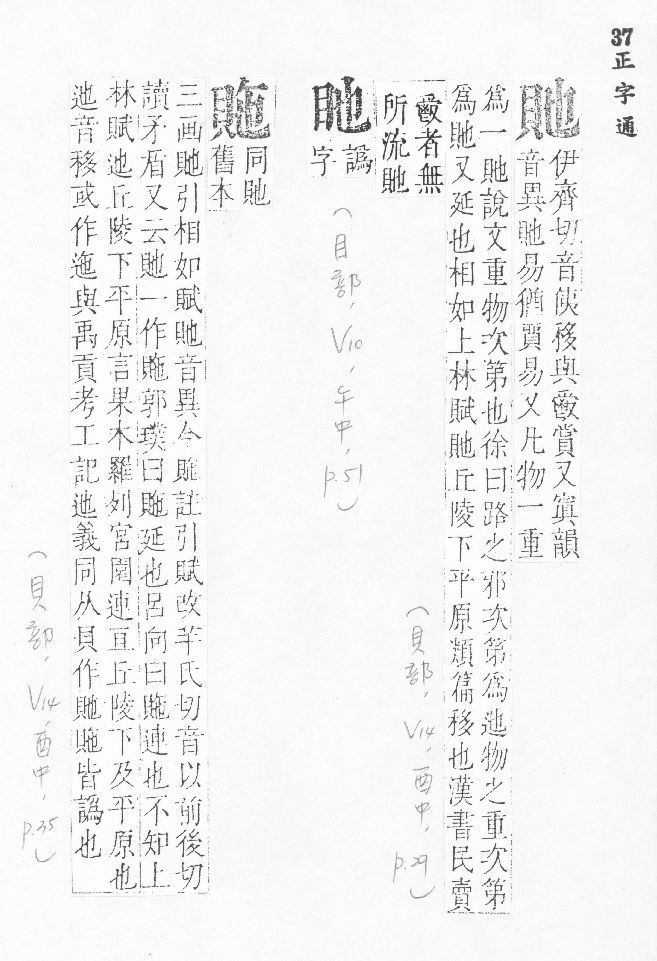 37正字通
貤
伊齊切音侇移與㪤賞又寘韻
音異貤易猶貿易又凡物一重
為一貤說文重物次第也徐曰路之邪次第為迆物之重次第
為貤又延也相如上林賦貤丘陵下平原類篇移也漢書民賣
㪤者無
所流貤
𥅓
譌
字
(目部, V10, 午中, p.51)
(貝部, V14, 酉中, p.29)
貤
同貤
舊本
三画貤引相如賦貤音異今貤註引賦改羊氏切音以前後切
讀矛盾又云貤一作貤郭璞曰貤延也呂向曰貤連也不知上
林賦迆丘陵下平原言果木羅列宮園連亘丘陵下及平原也
迆音移或作迤與禹貢考工記迆義同从貝作貤貤皆譌也
(貝部, V14, 酉中, p.35)